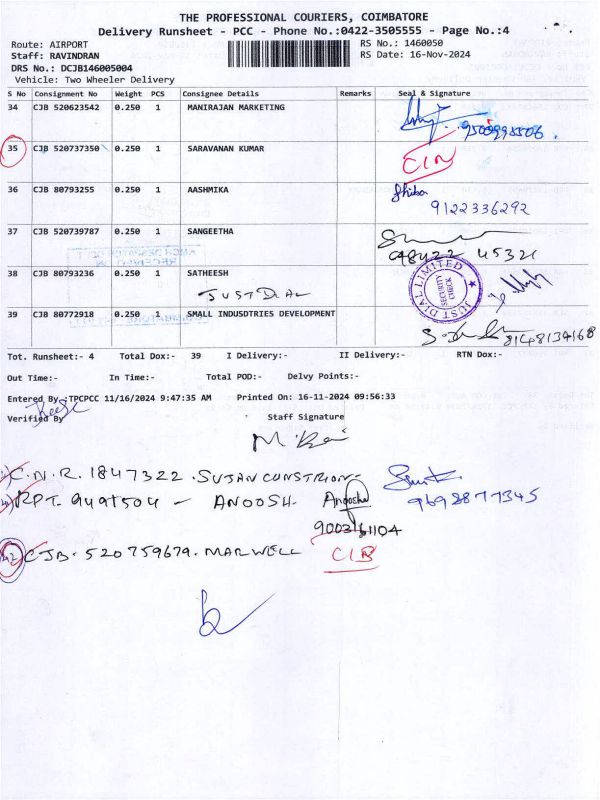 THE PROFESSIONAL COURIERS, COIMBATORE
Delivery Runsheet - PCC - Phone No.:0422-3505555 - Page No.:4
Route: AIRPORT
RS No.: 1460050
Staff: RAVINDRAN
RS Date: 16-Nov-2024
DRS No.: DCJB146005004
Vehicle: Two Wheeler Delivery
S No Consignment No Weight PCS Consignee Details Remarks Seal & Signature
34 CJB 520623542 0.250 1 MANIRAJAN MARKETING
35 CJB 520737350 0.250 1 SARAVANAN KUMAR
36 CJB 80793255 0.250 1 AASHMIKA
9122336292
37 CJB 520739787 0.250 1 SANGEETHA
98422 45321
38 CJB 80793236 0.250 1 SATHEESH
JUST DIAL
JUST DIAL LIMITED
SECURITY CHECK
39 CJB 80772918 0.250 1 SMALL INDUSDTRIES DEVELOPMENT
8148134168
Tot. Runsheet:- 4 Total Dox:- 39 I Delivery:- II Delivery:- RTN Dox:-
Out Time:- In Time:- Total POD:- Delvy Points:-
Entered By :TPCPCC 11/16/2024 9:47:35 AM Printed On: 16-11-2024 09:56:33
Verified By Staff Signature
C.N.R. 1847322. SUJAN CONSTRION
RPT. 9491504 - ANOOSH
9698877345
9003161104
42 CJB. 520759679. MARWELL CIB